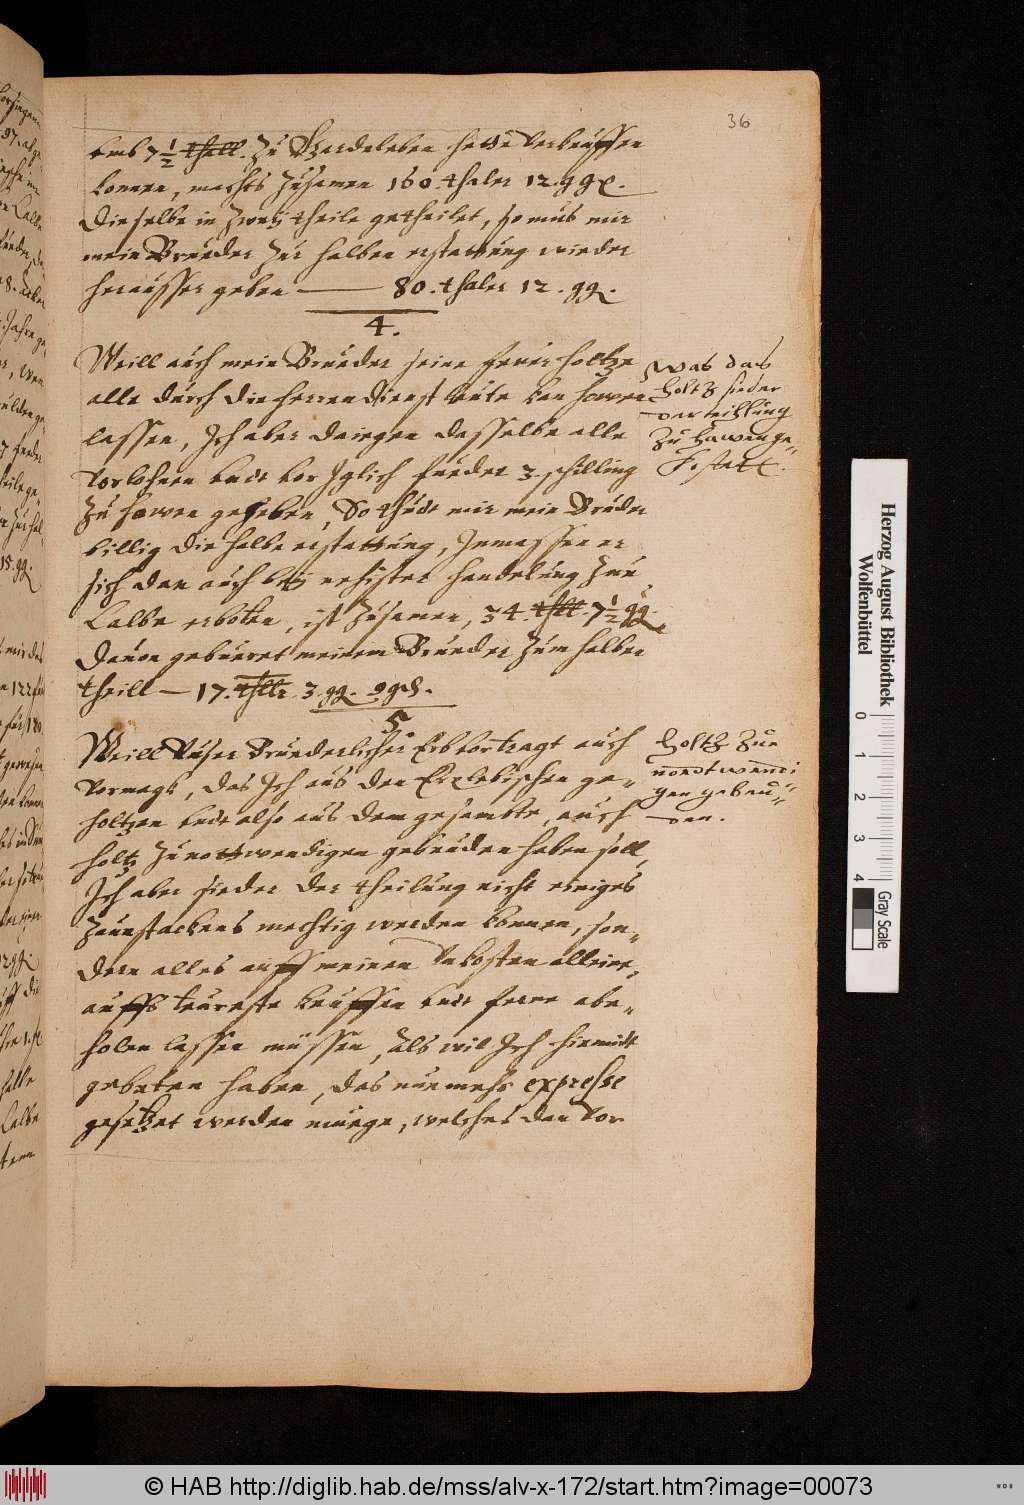 36
vmb 7 1/2 thall. Zu Gardeleben hette verkauffen
konnen, machts Zusamen 160. thaler 12. ggl.
Dieselbe in Zweÿ theile getheilet, so mus mir
mein Bruder Zur halben erstattung wieder
heraußer geben — 80. thaler 12. gg.
4.
Weill auch mein Bruder seine feur holtze
alle durch die herren dienst leute kan hawen
lassen, Ich aber daiegen dasselbe alle
vorlohnen vndt vor Iglich fueder 3. schilling
Zu hawen geheben, So thudt mir mein Bruder
billig die halbe erstattung, Inmassen er
sich dan auch beÿ erhister handelung Zue
Calbe erboten, ist Zusamen, 34. thll. 7 1/2 gg.
Dauon gebueret meinem Bruder Zum halben
theill — 17. thlr. 3. gg. 9 gd.
5.
Weill Vnser Bruederlicher Erbvortragt auch
vormagk, das Ich aus den Erxlebischen ge-
holtzen vndt also aus dem gesambte, auch
holtz Zu nottwendigen gebeuden haben soll,
Ich aber sieder der theilung nicht einiges
Zaunstackens mechtig werden konnen, son-
dern alles auff meinen Vnkosten alleine,
auffs teureste kauffen vndt ferne abe-
holen lassen müssen, Als wil Ich hiemidt
gebeten haben, das nunmehr expresse
gesetzet werden muege, welches den vor
was das
holtz sieder
der teihlung
Zu hawen ge-
kostett.
Holtz Zue
nordtwendi
gen gebeu-
den.
Herzog August Bibliothek
Wolfenbüttel
0 1 2 3 4
Gray Scale
© HAB http://diglib.hab.de/mss/alv-x-172/start.htm?image=00073